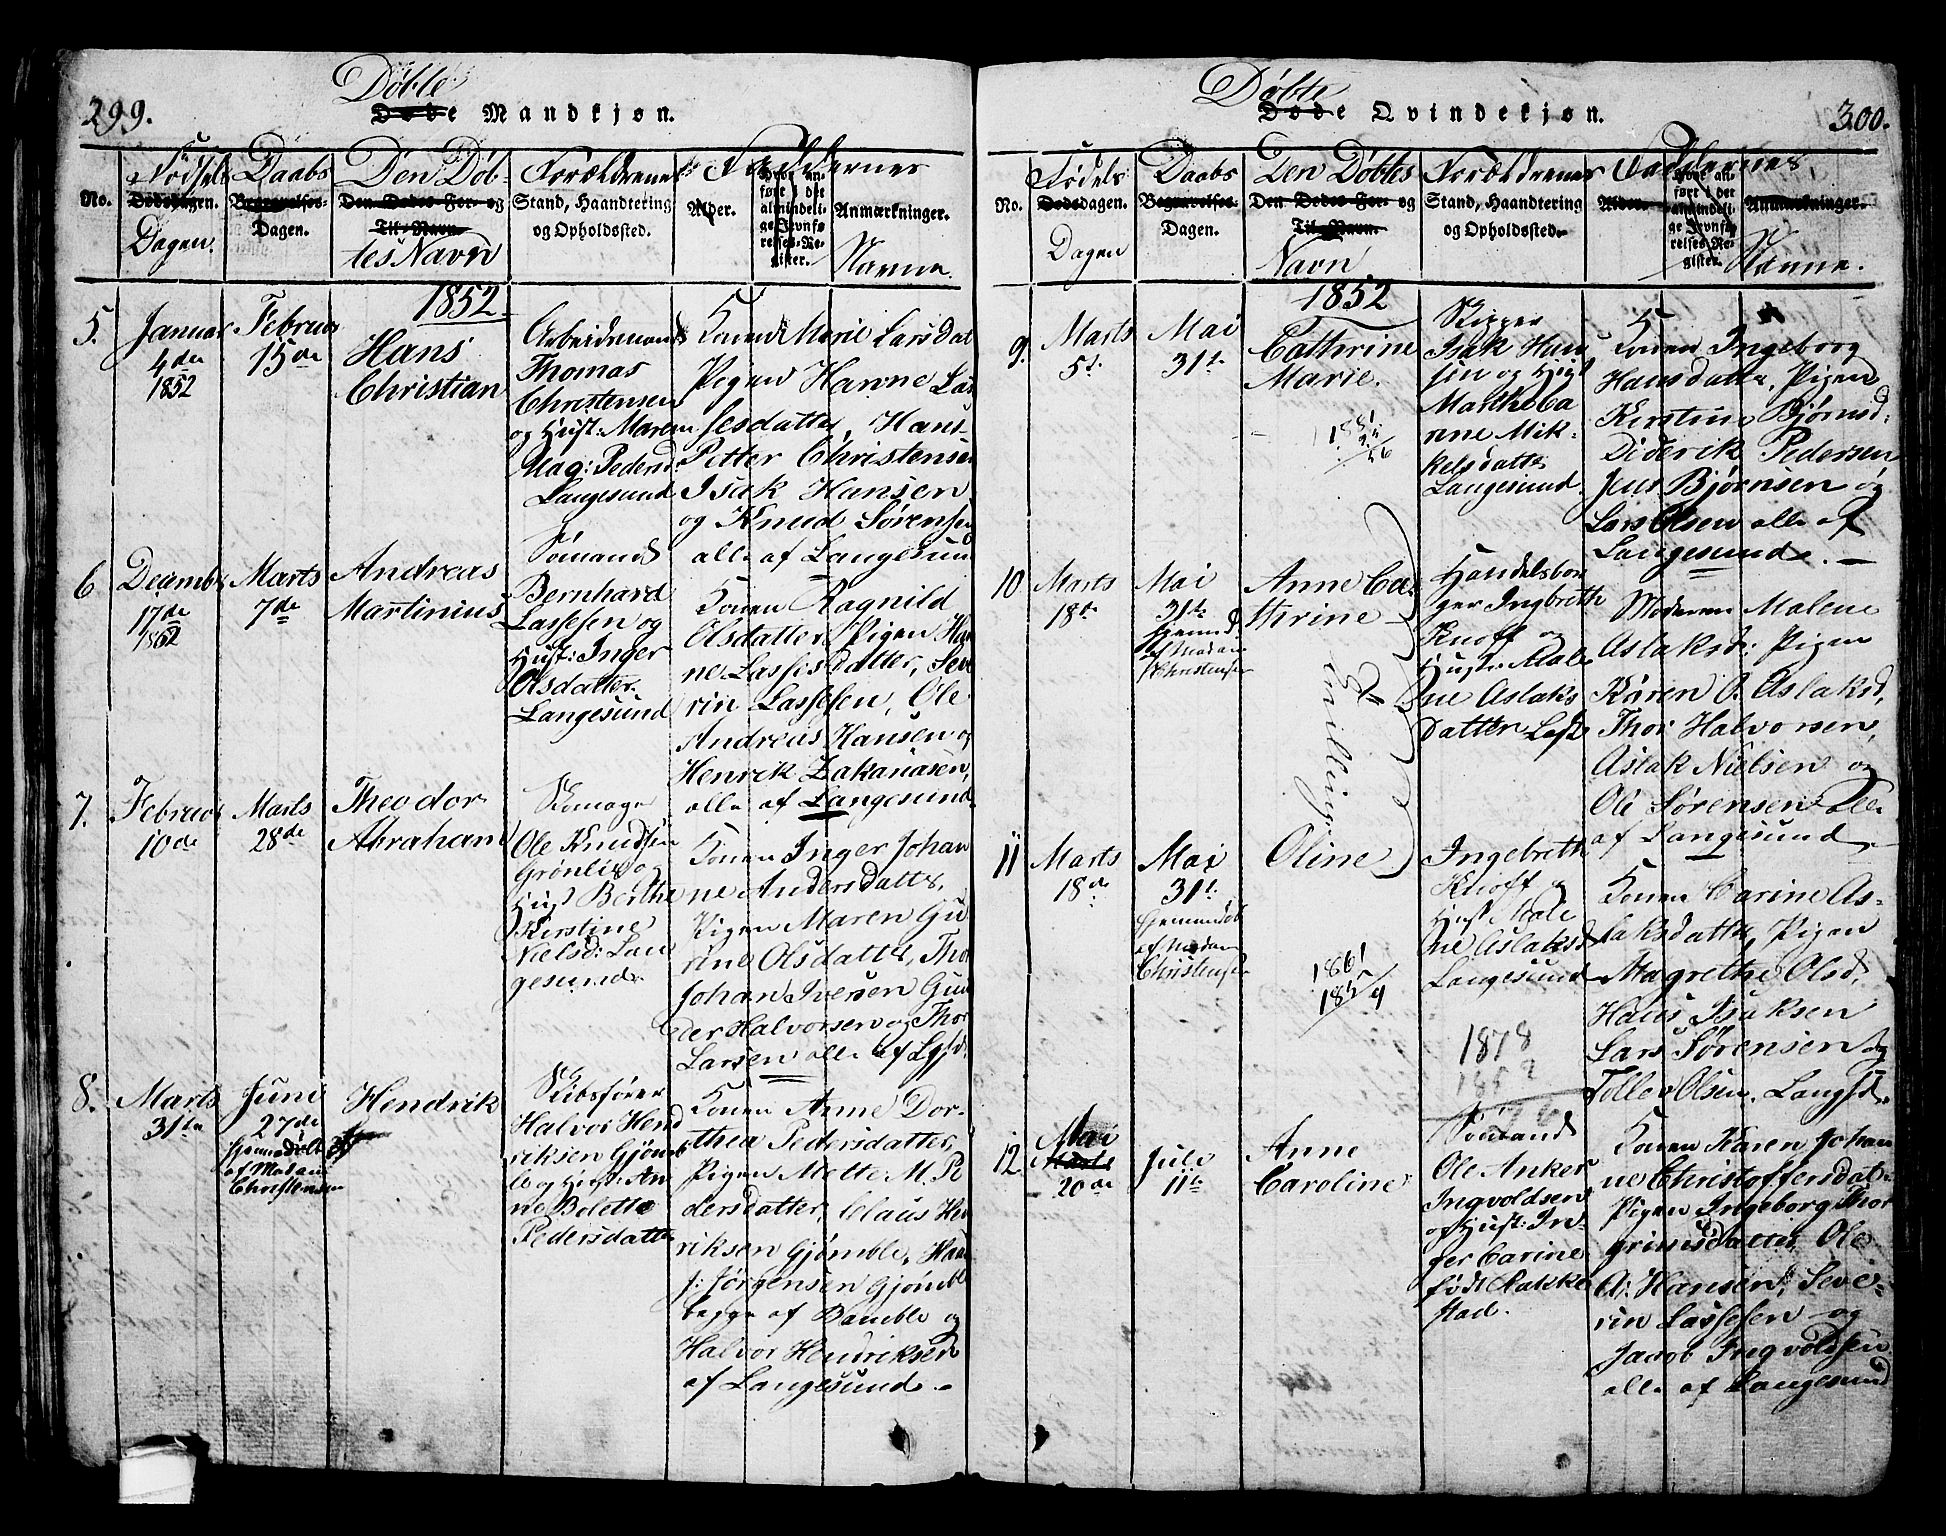 299.
Døbte
Døde Mandkjøn.
No.
Fødsels
Dødsdagen.
Dagen.
Daabs
Begravelses-
Dagen.
Den Døb-
Den Dødes For- og
Til-Navn.
tes Navn
Forældrenes
Stand, Haandtering
og Opholdssted.
Faddernes
Alder.
Anmærkninger.
Navne.
1852.
5.
Januar
4de
1852
Februar
15de
Hans
Christian
Arbeidsmand
Thomas
Christensen
og Hust: Maren
Mag: Pedersd:
Langesund
Konen Marie Larsdat
Pigen Hanne Las
sesdatter, Hans
Petter Christensen
Isak Hansen
og Knud Sørensen
alle af Langesund
6
Decembr
17de
Marts
7de
Andreas
Martinius
Sømand
Bernhard
Lassesen og
Hust: Inger
Olsdatter
Langesund
Konen Ragnild
Olsdatter, Pigen Han
ne Lassesdatter, Seve
rin Lassesen, Ole
Andreas Hansen og
Henrik Zakariasen,
alle af Langesund.
7.
Februar
10de
Marts
28de
Theodor
Abraham
Ole Knudsen
Grønlie og
Hust Berthe
Kerstine
Nielsd: Lan
gesund
Konen Inger Johan
ne Andersdatter,
Pigen Maren Gu
rine Olsdatter, Thor
Johan Iversen Gun
der Halvorsen og Thor
Larsen alle af Lgsd.
8.
Marts
31te
Juni
27de
hjemmedøbt
af Madam
Christensen
Hendrik
Skibsfører
Halvor Hend
riksen Gjømb
le og Hust: An
ne Bolette
Pedersdatter
Konen Anne Dor-
thea Pedersdatter,
Pigen Mette M. Pe
dersdatter, Claus Hen
riksen Gjømble, Hans
J: Jørgensen Gjømble
begge af Bamble og
Halvor Hendriksen
af Langesund.
300.
Døbte
Døde Qvindekjøn.
No.
Fødels
Dødsdagen.
Dagen
Daabs
Begravelses-
Dagen.
Den Døbtes
Den Dødes For- og
Til-Navn.
Navn
Forældrenes
Stand, Haandtering
og Opholdssted.
Faddernes
Alder.
Anmærkninger.
Navne.
1852
9.
Marts
5t
Mai
31t
Cathrine
Marie.
Skipper
Isak Han
sen og Hust
Marthe Ca
rine Mik-
kelsdatter
Langesund
Konen Ingeborg
Hansdatter, Pigen
Kerstine Bjørnsd:
Diderik Pedersen
Jens Bjørnsen og
Lars Olsen alle af
Langesund.
10
Marts
18de
Mai
31te
hjemmd
af Madam
Christensen
Anne Ca-
thrine
Tvillinger
Handelsbor
ger Ingbreth
Knoff og
Hust: Male
ne Aslaks
datter
Moderen Malene
Aslaksd: Pigen
Karen A. Aslaksd,
Thor Halvorsen,
Aslak Nielsen og
Ole Sørensen alle
af Langesund
11
Marts
18de
Mai
31t
hjemmedøb
af Madam
Christensen
Oline
1861
Ingebreth
Knoff og
Hust Male
ne Aslaksd
Langesund
1878
1852
26
Konen Carine As-
laksdatter, Pigen
Magrethe Olsd,
Hans Isaksen
Lars Sørensen og
Tollev Olsen. Langsd.
12
Mai
Marts
20de
Juli
11te
Anne
Caroline
Sømand
Ole Anker
Ingvoldsen
og Hust: In-
ger Carine
født Aakke
stad.
Konen Karen Johan
ne Christoffersdat-
Pigen Ingeborg Thor
grimsdatter, Ole
A: Hansen, Seve-
rin Lassesen og
Jacob Ingvoldsen
alle af Langesund